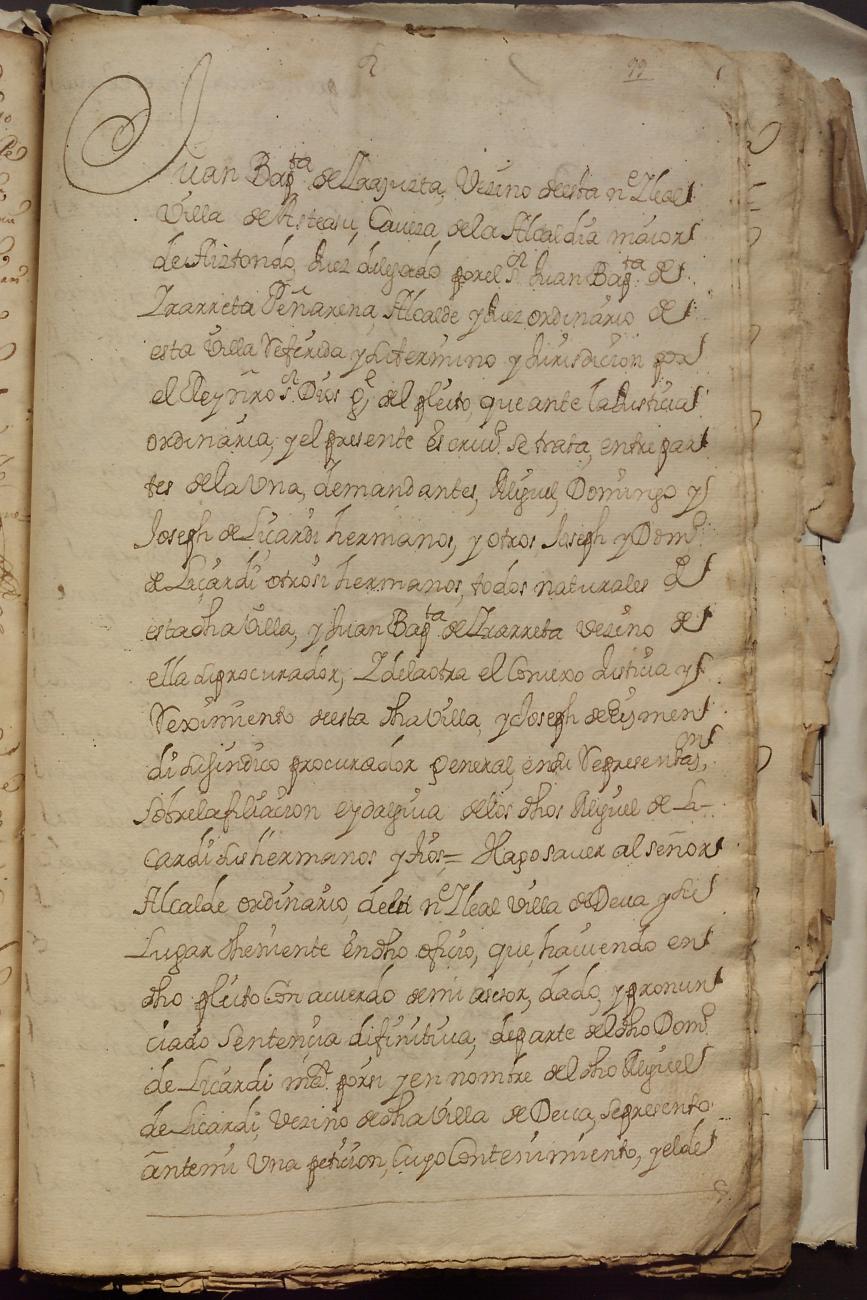 99
Juan Bap.ta de Yrarjuzta, Vezino de esta n.e Y leal
Villa de Asteasu, Caueza de la Alcaldia maior
de Aiztondo, Juez delegado por el S.r Juan Bap.ta de
Yrarreta Peñarena, Alcalde y Juez ordinario de
esta Villa Referida y su termino y Jurisdicion por
el Rey nro S.r Dios g.e, del pleito, que ante la Justicia
ordinaria, y el presente Escriu.o se trata, entre par
tes de la Vna, demandantes, Miguel, Domingo y
Joseph de Licardi hermanos, y otros Joseph y Dom.o
de Licardi otrosi hermanos, todos naturales de
esta dha Villa, y Juan Bap.ta de Yrarreta vezino de
ella su procurador, Y de la otra el Conzexo Justicia y
Reximiento de esta dha Villa, y Joseph de Eysmen
di su sindico procurador general, en su Representaz.on,
Sobre la filiacion e ydalguia de los dhos Miguel de Li-
cardi sus hermanos y hijos = Hago sauer al señor
Alcalde ordinario, de la n.e Y leal Villa de Deua y su
Lugar theniente en dho oficio, que, hauiendo en
dho pleito Con acuerdo de mi asesor, dado, y pronun
ciado Sentencia difinitiua, de parte del dho Dom.o
de Licardi por si y en nombre del dho Miguel
de Licardi, Vezino de dha Villa de Deua, se presento
ante mi Vna peticion, Cuyo Contenimiento, y el de